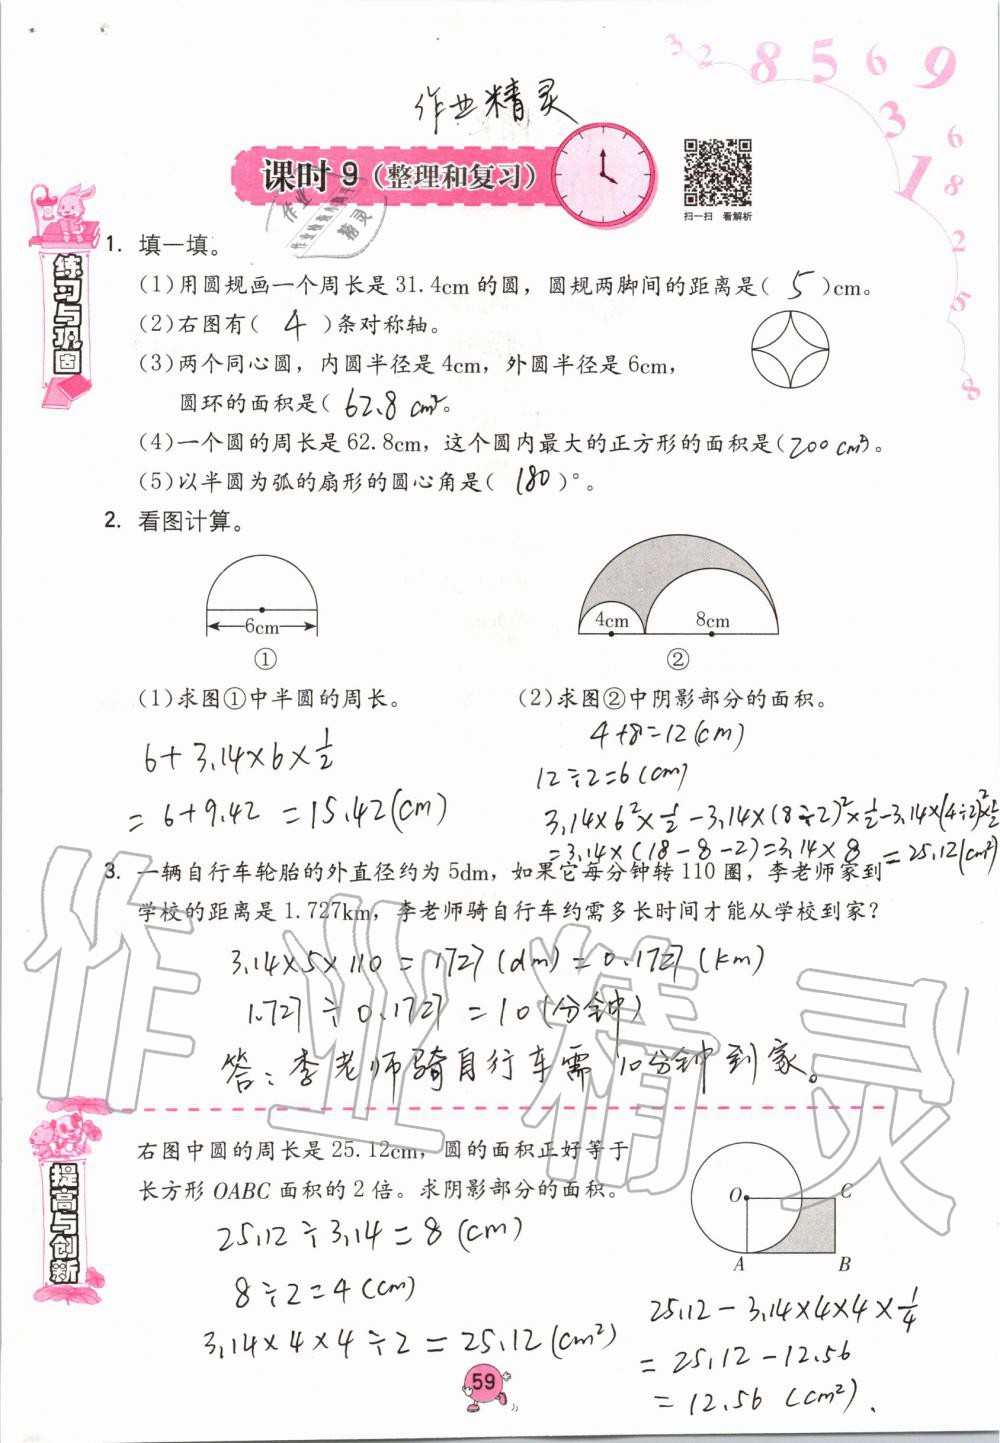 3 2 8 5 6 9
3 6
1 8
2
5
8
作业精灵
课时9（整理和复习）
扫一扫 看解析
练习与巩固
1. 填一填。
(1)用圆规画一个周长是31.4cm的圆，圆规两脚间的距离是( 5 )cm。
(2)右图有( 4 )条对称轴。
(3)两个同心圆，内圆半径是4cm，外圆半径是6cm，
圆环的面积是( 62.8 cm²。
(4)一个圆的周长是62.8cm，这个圆内最大的正方形的面积是(200 cm²)。
(5)以半圆为弧的扇形的圆心角是( 180 )°。
2. 看图计算。
6cm
①
4cm 8cm
②
(1)求图①中半圆的周长。
6+3.14×6×1/2
=6+9.42 =15.42(cm)
(2)求图②中阴影部分的面积。
4+8=12(cm)
12÷2=6(cm)
3.14×6²×1/2-3.14×(8÷2)²×1/2-3.14×(4÷2)²×1/2
=3.14×(18-8-2)=3.14×8 =25.12(cm²)
3. 一辆自行车轮胎的外直径约为5dm，如果它每分钟转110圈，李老师家到
学校的距离是1.727km，李老师骑自行车约需多长时间才能从学校到家？
3.14×5×110=1727(dm)=0.1727(km)
1.727÷0.1727=10(分钟)
答：李老师骑自行车需10分钟到家。
作业精灵
提高与创新
右图中圆的周长是25.12cm，圆的面积正好等于
长方形OABC面积的2倍。求阴影部分的面积。
O C
A B
25.12÷3.14=8(cm)
8÷2=4(cm)
3.14×4×4÷2=25.12(cm²)
25.12-3.14×4×4×1/4
=25.12-12.56
=12.56 (cm²).
59